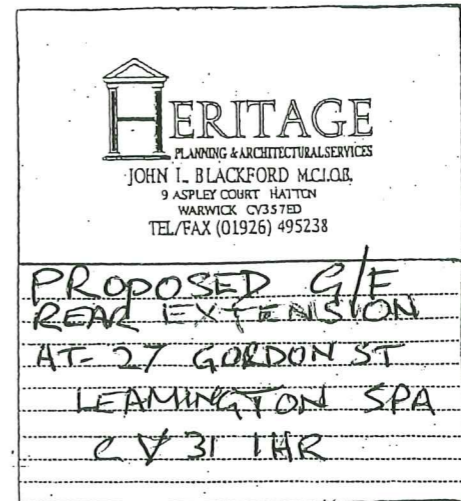 HERITAGE
PLANNING & ARCHITECTURAL SERVICES
JOHN L. BLACKFORD M.C.I.O.B.
9 ASPLEY COURT HATTON
WARWICK CV35 7ED
TEL/FAX (01926) 495238
PROPOSED G/F
REAR EXTENSION
AT- 27 GORDON ST
LEAMINGTON SPA
CV31 1HR